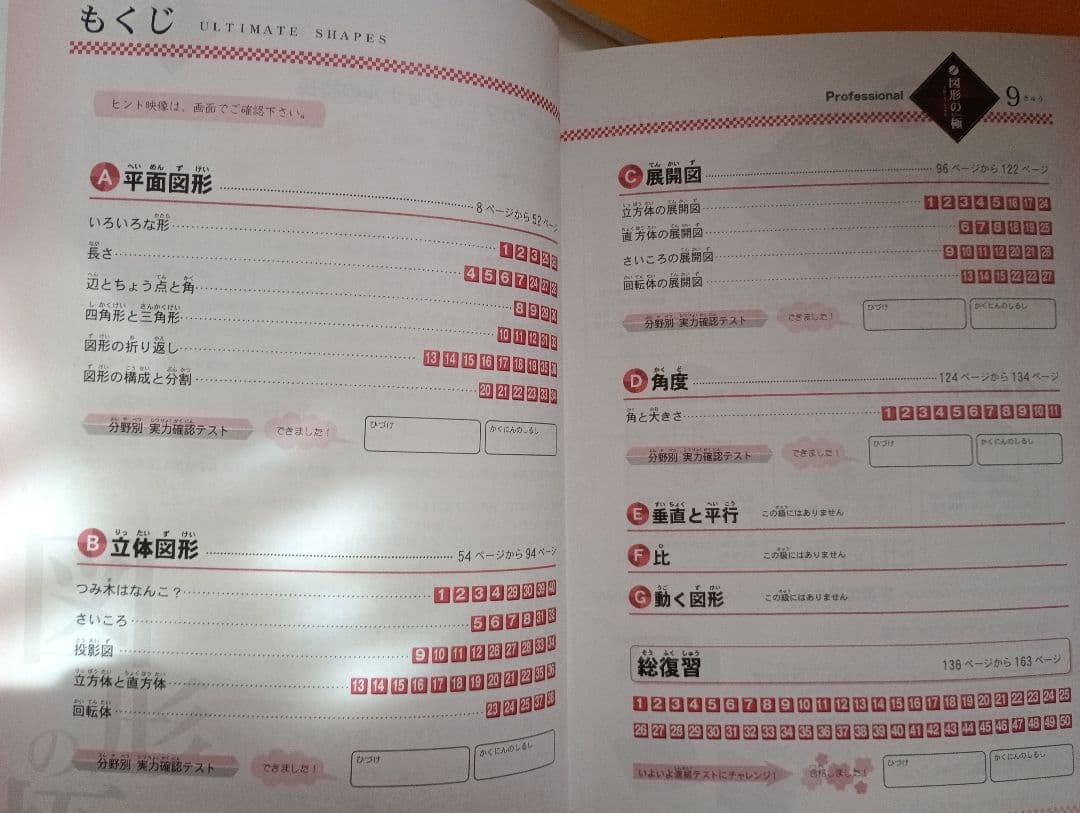 もくじ ULTIMATE SHAPES
ヒント映像は、画面でご確認下さい。
A 平面図形 8ページから52ページ
いろいろな形 1 2 3 25 26
長さ 4 5 6 7 24 27 28
辺とちょう点と角 8 9 29 30
四角形と三角形 10 11 12 31 32
図形の折り返し 13 14 15 16 17 18 19 35 36
図形の構成と分割 20 21 22 23 33 34
分野別 実力確認テスト できました! ひづけ かくにんのしるし
B 立体図形 54ページから94ページ
つみ木はなんこ? 1 2 3 4 29 30 39 40
さいころ 5 6 7 8 31 32
投影図 9 10 11 12 26 27 28 33 34
立方体と直方体 13 14 15 16 17 18 19 20 21 22 35 36
回転体 23 24 25 37 38
分野別 実力確認テスト できました! ひづけ かくにんのしるし
Professional 図形の極 9きゅう
C 展開図 96ページから122ページ
立方体の展開図 1 2 3 4 5 16 17 24
直方体の展開図 6 7 8 18 19 25
さいころの展開図 9 10 11 12 20 21 26
回転体の展開図 13 14 15 22 23 27
分野別 実力確認テスト できました! ひづけ かくにんのしるし
D 角度 124ページから134ページ
角と大きさ 1 2 3 4 5 6 7 8 9 10 11
分野別 実力確認テスト できました! ひづけ かくにんのしるし
E 垂直と平行 この級にはありません
F 比 この級にはありません
G 動く図形 この級にはありません
総復習 136ページから163ページ
1 2 3 4 5 6 7 8 9 10 11 12 13 14 15 16 17 18 19 20 21 22 23 24 25
26 27 28 29 30 31 32 33 34 35 36 37 38 39 40 41 42 43 44 45 46 47 48 49 50
いよいよ進級テストにチャレンジ! 合格しました! ひづけ かくにんのしるし